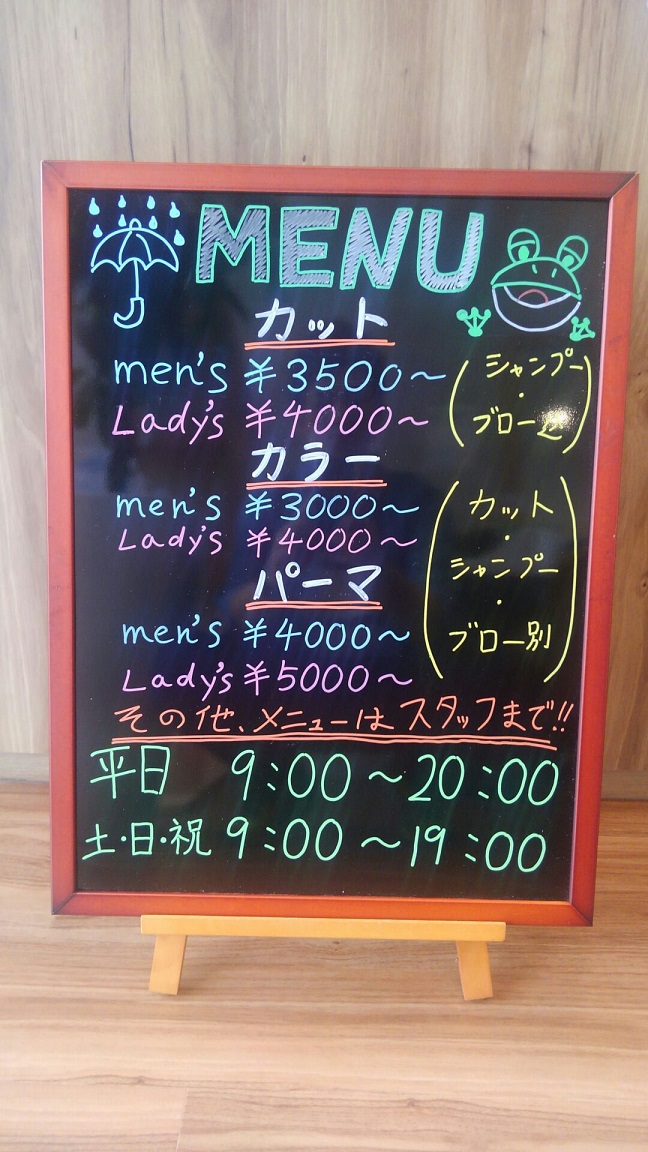 MENU
カット
men's ¥3500～
Lady's ¥4000～
(シャンプー
・
ブロー込)
カラー
men's ¥3000～
Lady's ¥4000～
パーマ
men's ¥4000～
Lady's ¥5000～
(カット
・
シャンプー
・
ブロー別)
その他、メニューはスタッフまで!!
平日 9:00～20:00
土・日・祝 9:00～19:00